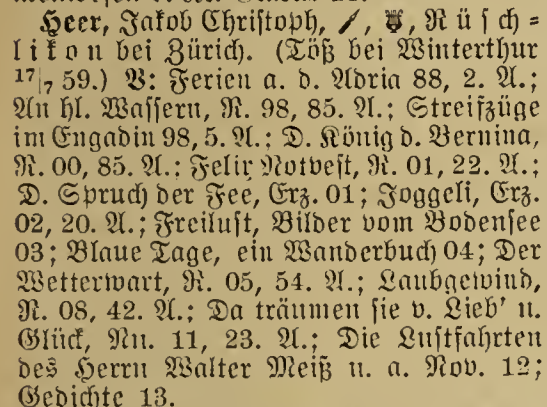 Heer, Jakob Christoph, Rüsch-
likon bei Zürich. (Töß bei Winterthur
17/7 59.) V: Ferien a. d. Adria 88, 2. A.;
An hl. Wassern, R. 98, 85. A.; Streifzüge
im Engadin 98, 5. A.; D. König d. Bernina,
R. 00, 85. A.; Felix Notvest, R. 01, 22. A.;
D. Spruch der Fee, Erz. 01; Joggeli, Erz.
02, 20. A.; Freiluft, Bilder vom Bodensee
03; Blaue Tage, ein Wanderbuch 04; Der
Wetterwart, R. 05, 54. A.; Laubgewind,
R. 08, 42. A.; Da träumen sie v. Lieb' u.
Glück, Nn. 11, 23. A.; Die Luftfahrten
des Herrn Walter Meiß u. a. Nov. 12;
Gedichte 13.